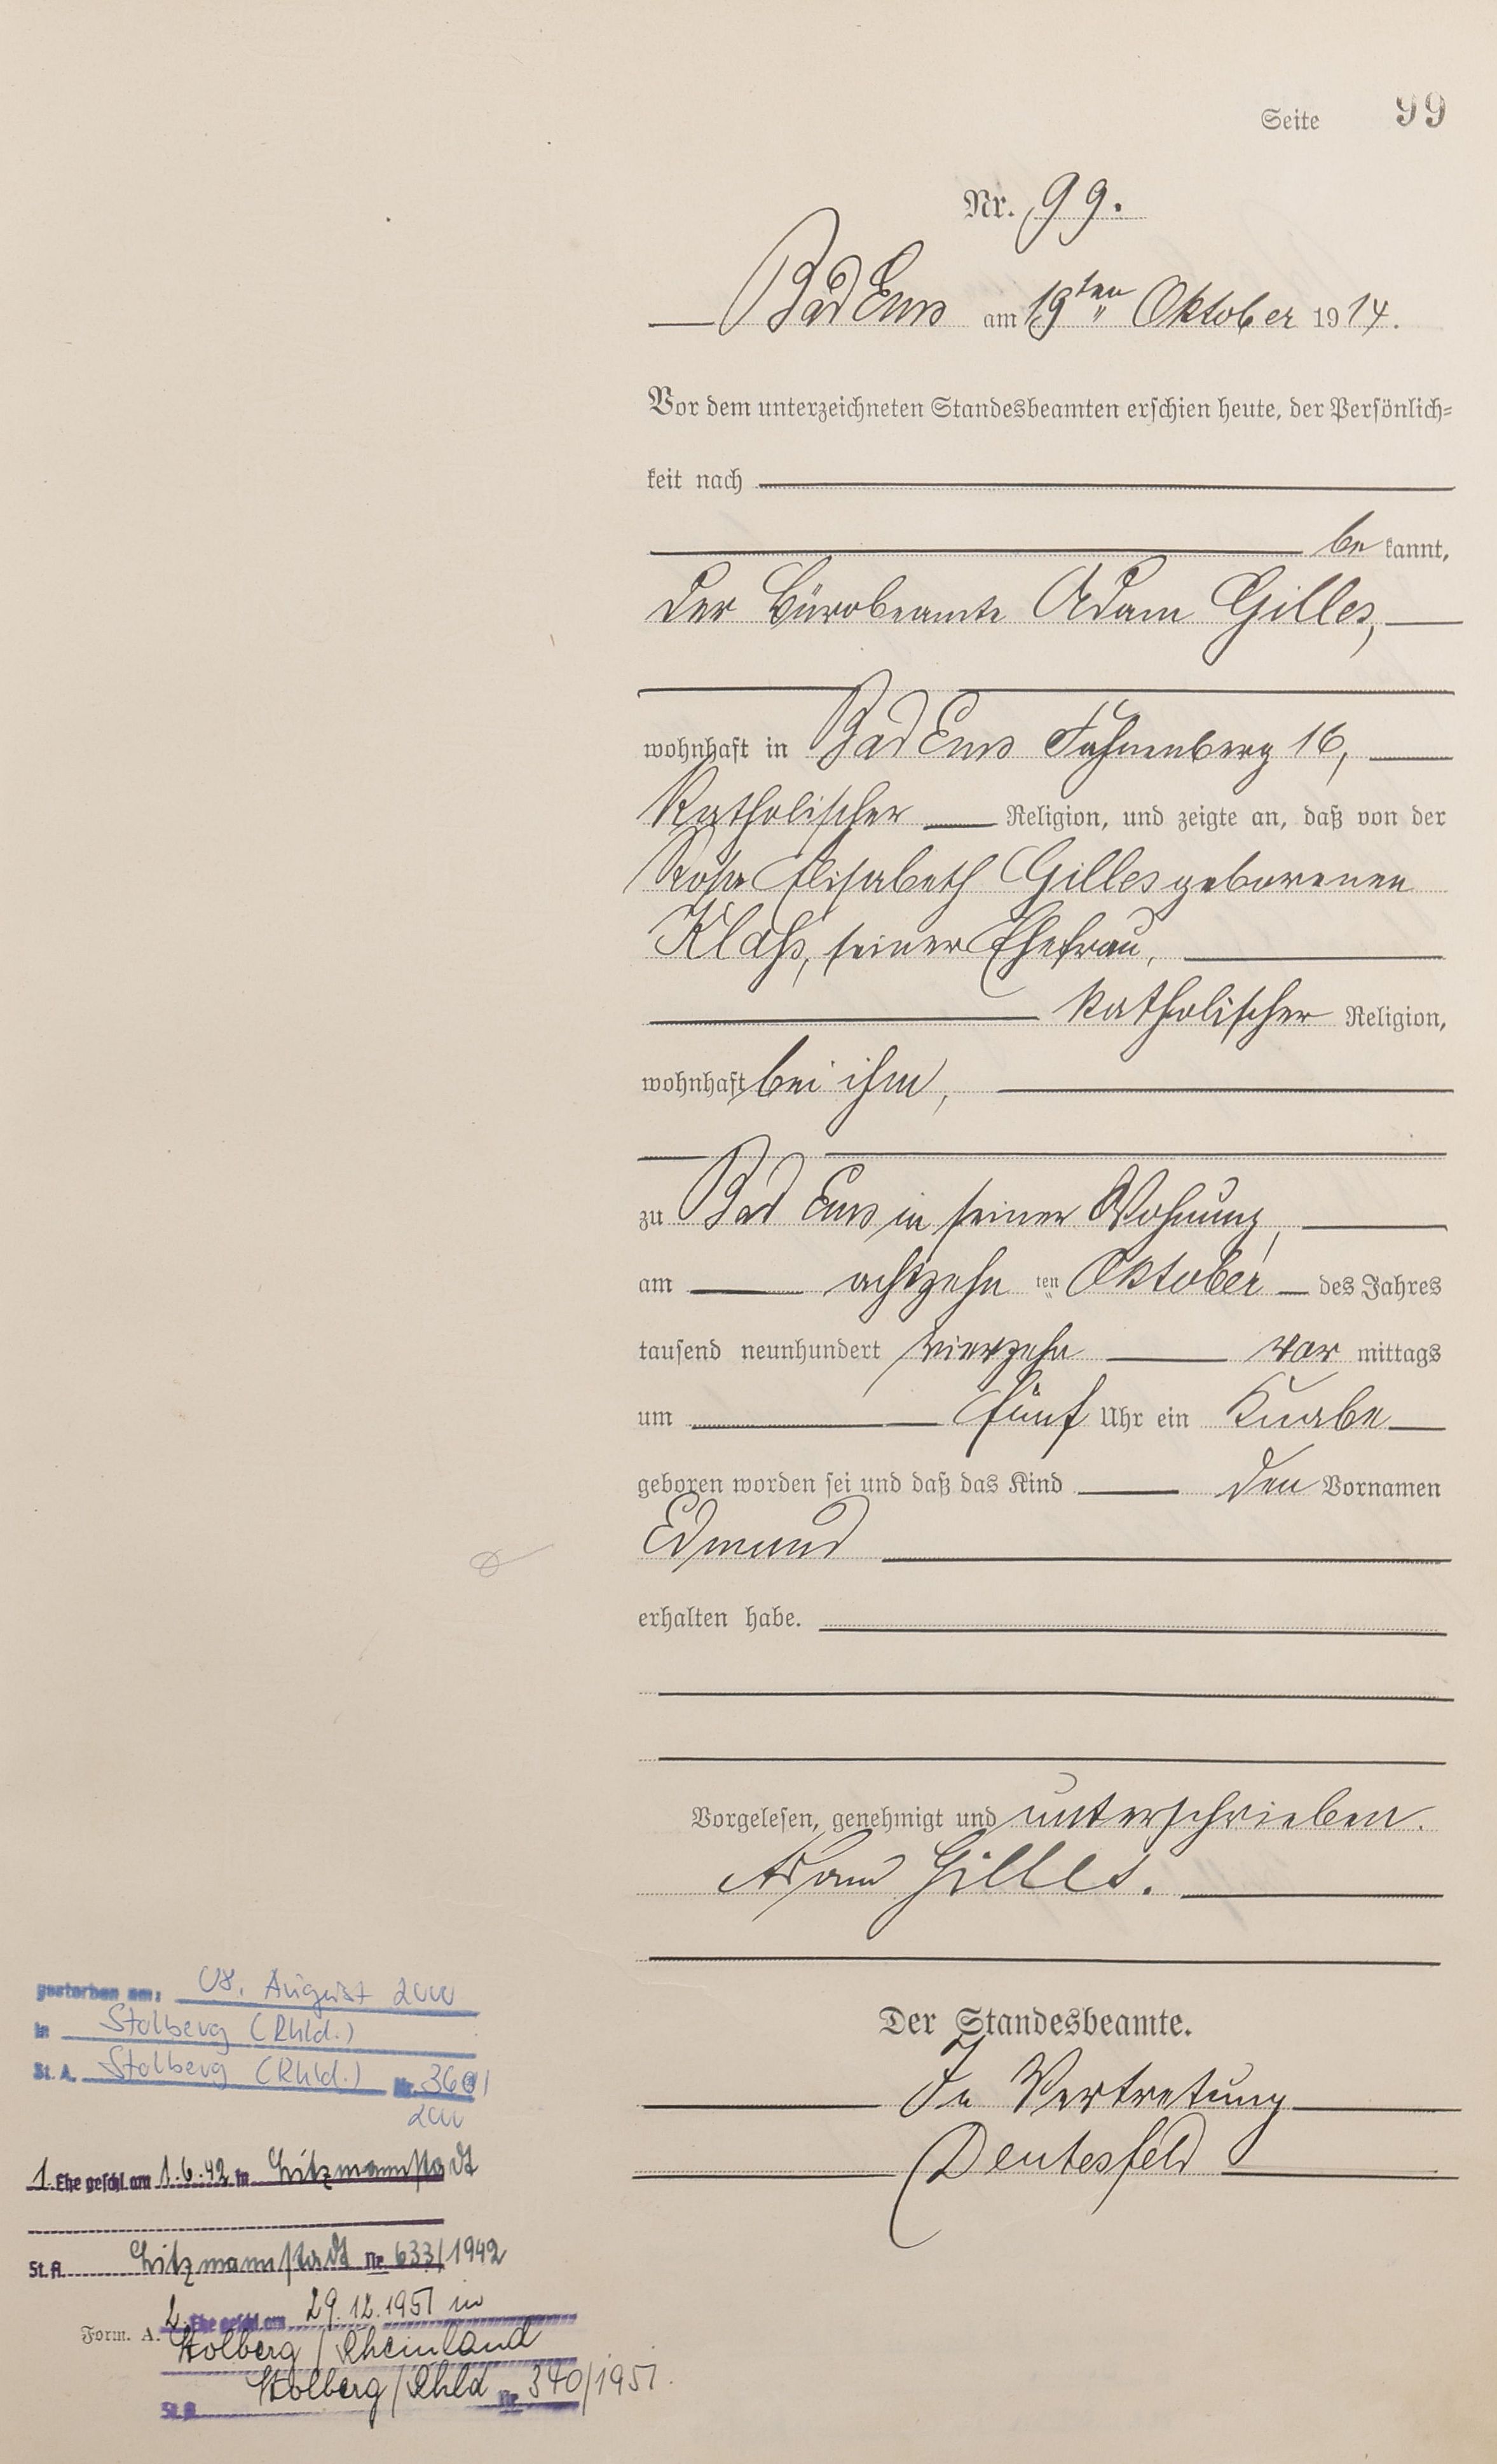 Seite 99
Nr. 99.
Bad Ems am 19ten Oktober 1914.
Vor dem unterzeichneten Standesbeamten erschien heute, der Persönlich-
keit nach
be kannt,
der Bürobeamte Adam Gilles,
wohnhaft in Bad Ems Fahnenberg 16,
katholischer Religion, und zeigte an, daß von der
Rosa Elisabeth Gilles geborenen
Klahs, seiner Ehefrau,
katholischer Religion,
wohnhaft bei ihm,
zu Bad Ems in seiner Wohnung,
am achtzehn ten Oktober des Jahres
tausend neunhundert vierzehn vor mittags
um fünf Uhr ein Knabe
geboren worden sei und daß das Kind den Vornamen
Edmund
erhalten habe.
Vorgelesen, genehmigt und unterschrieben.
Adam Gilles.
Der Standesbeamte.
In Vertretung
Deutesfeld
gestorben am: 08. August 2000
in Stolberg (Rhld.)
St. A. Stolberg (Rhld.) Nr.
2000
1. Ehe geschl. am 1.6.42 in Litzmannstadt
St. A. Litzmannstadt Nr. 633/1942
2. Ehe geschl. am 29.12.1951 in
Form. A. Stolberg / Rheinland
St. A. Stolberg / Rhld Nr. 340/1951.